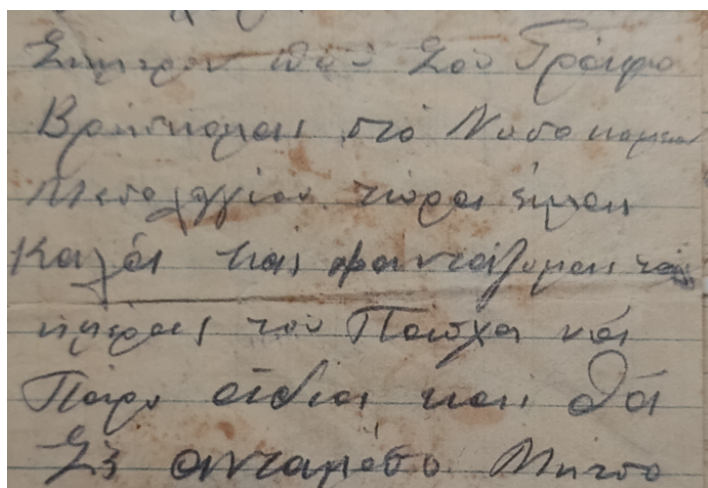 Σήμερον που σου Γράφω
Βρήσκομαι στό Νοσοκομείον
Μεσολογγίου τώρα είμαι
Καλά και φαντάζομαι τάς
ημέρας του Πάσχα νά
Πάρω άδια και θά
Σέ ανταμόσο Μητσο